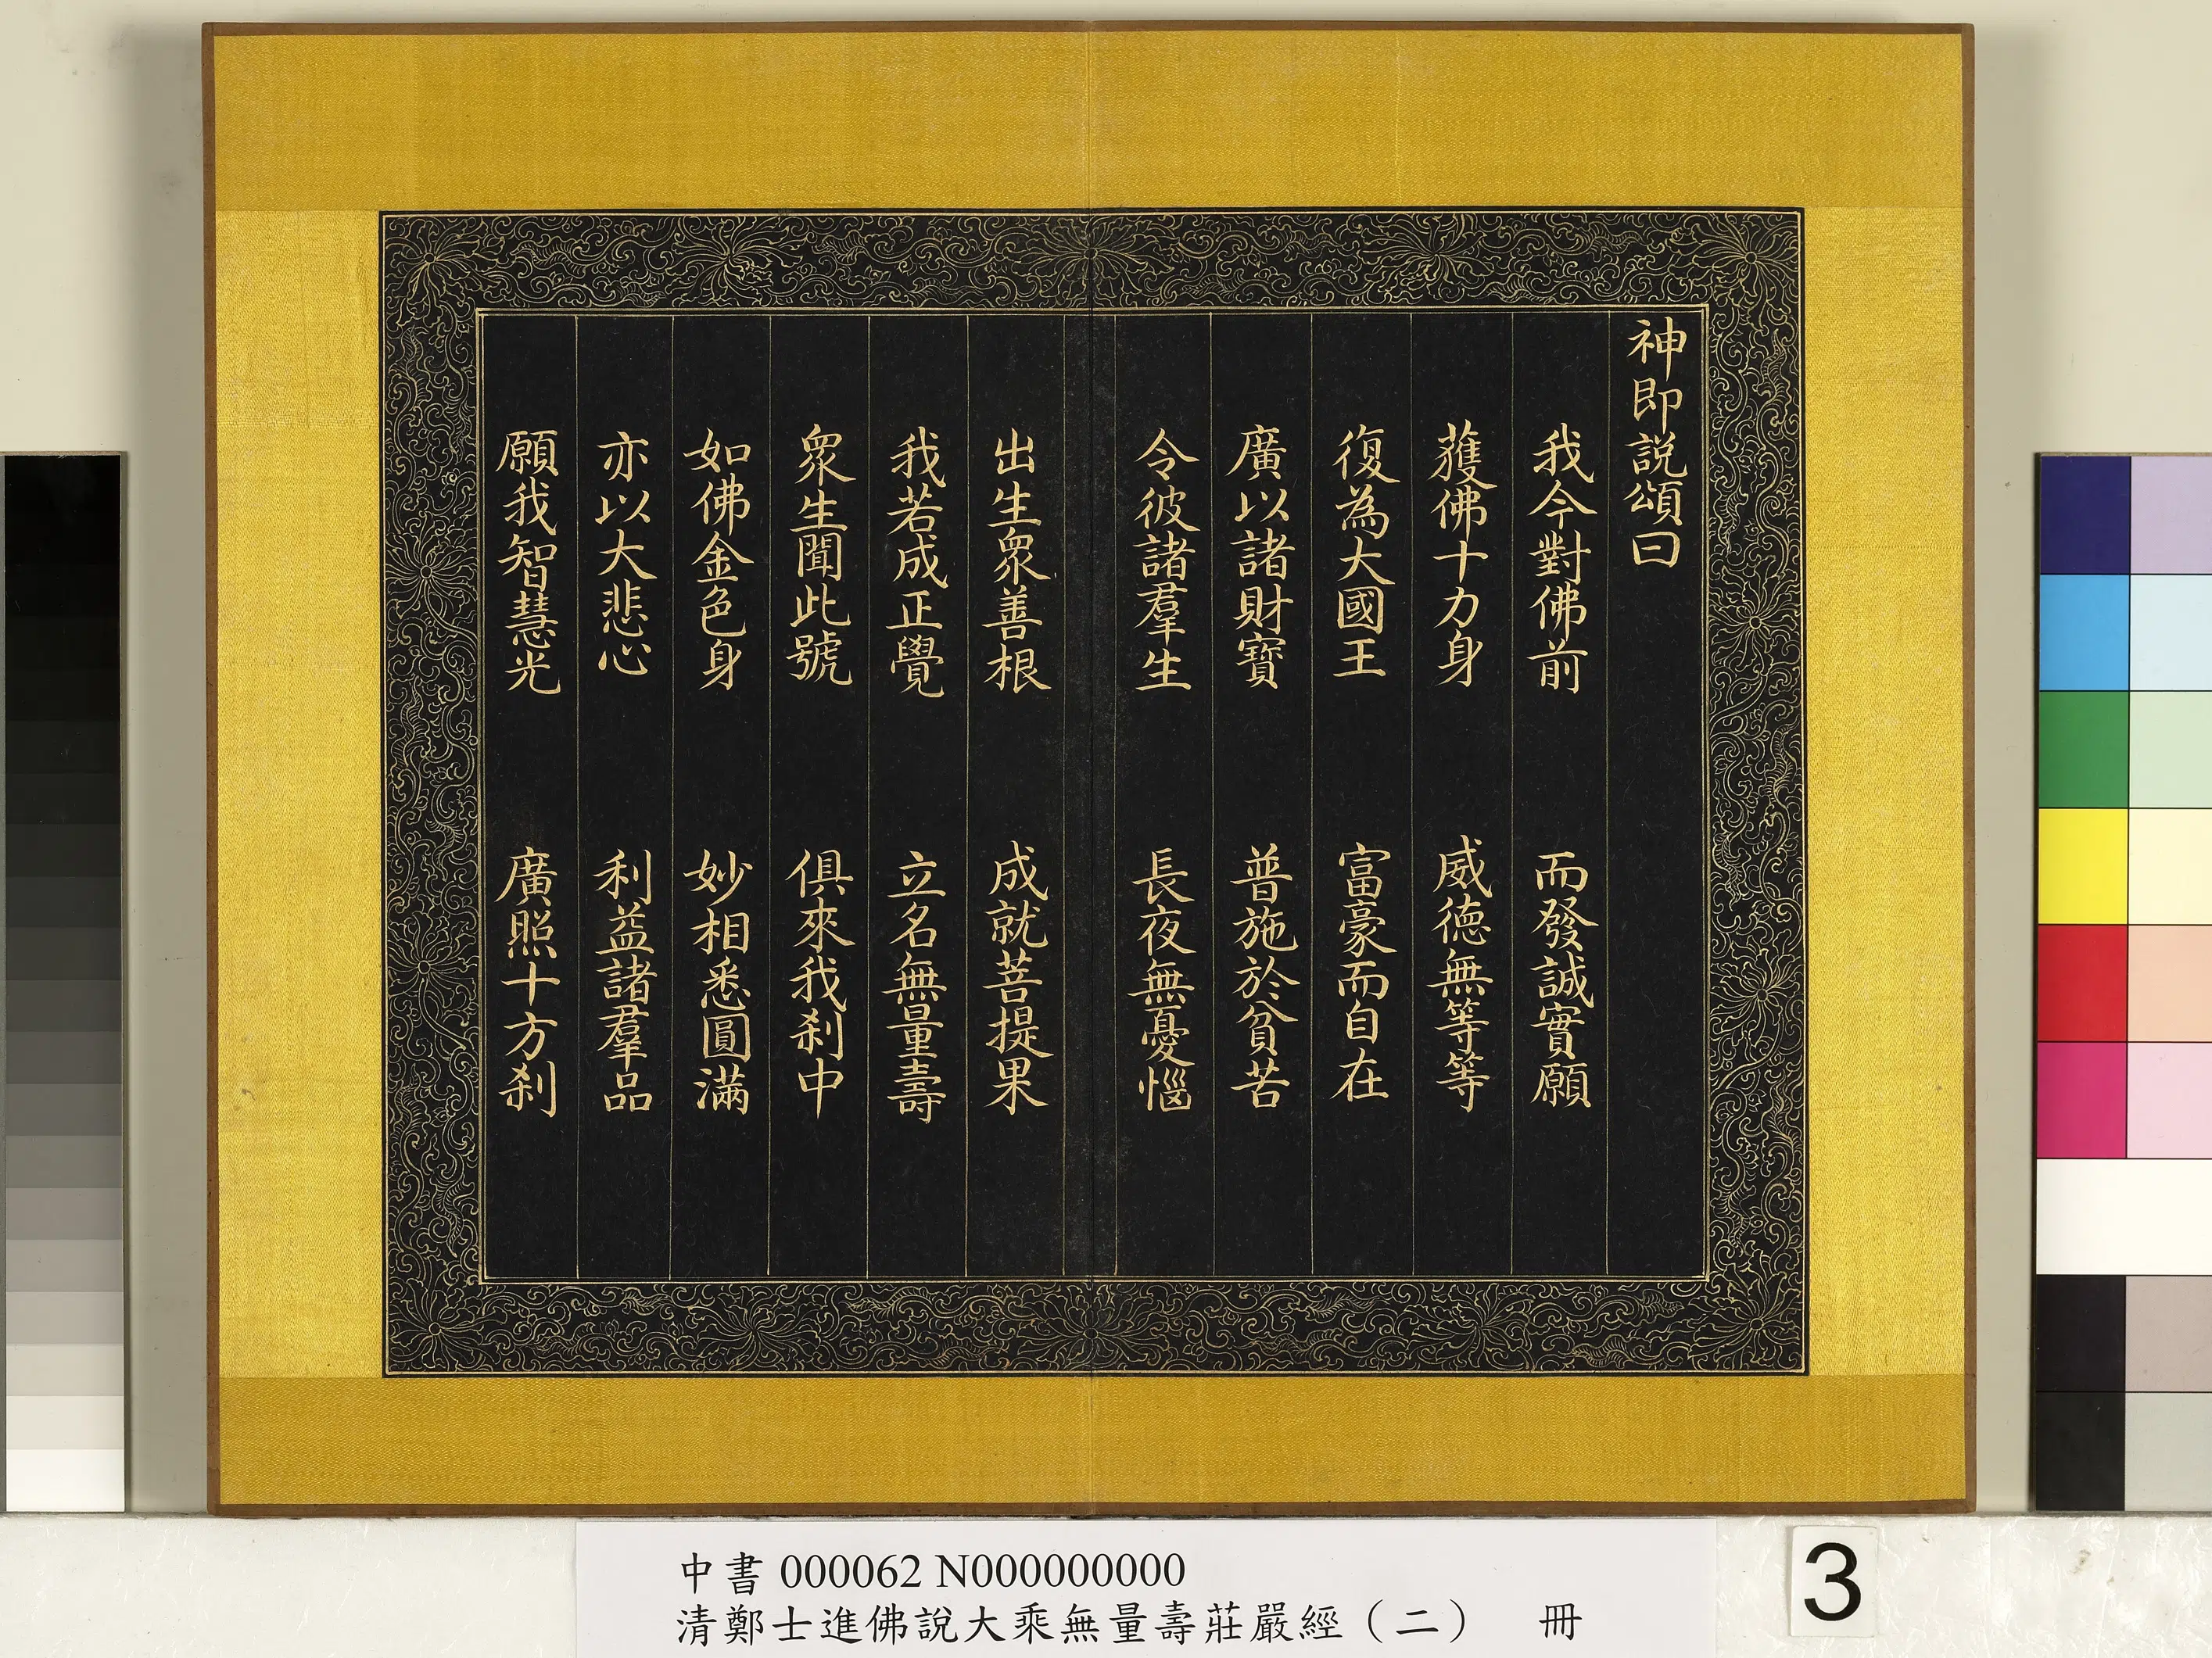 神即說頌曰
我今對佛前 而發誠實願
獲佛十力身 威德無等等
復為大國王 富豪而自在
廣以諸財寶 普施於貧苦
令彼諸羣生 長夜無憂惱
出生眾善根 成就菩提果
我若成正覺 立名無量壽
眾生聞此號 俱來我剎中
如佛金色身 妙相悉圓滿
亦以大悲心 利益諸羣品
願我智慧光 廣照十方剎
中書 000062 N000000000
清鄭士進佛說大乘無量壽莊嚴經（二） 冊
3